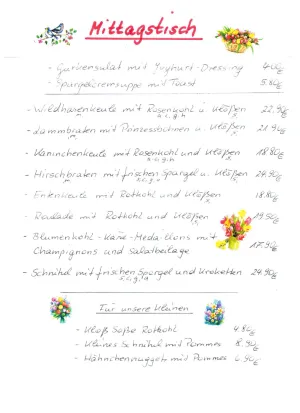 Mittagstisch
- Gurkensalat mit Joghurt-Dressing 4.00€
- Spargelcremesuppe mit Toast 5.80€
- Wildhasenkeule mit Rosenkohl u. Klößen 22.90€
- Lammbraten mit Prinzessbohnen u. Klößen 21.90€
- Kaninchenkeule mit Rosenkohl und Klößen 18.80€
- Hirschbraten mit frischen Spargel u. Klößen 24.90€
- Entenkeule mit Rotkohl und Klößen 18.80€
- Roulade mit Rotkohl und Klößen 19.50€
- Blumenkohl-Käse-Medaillons mit
Champignons und Salatbeilage 17.90€
- Schnitzel mit frischen Spargel und Kroketten 24.90€
Für unsere Kleinen
- Kloß Soße Rotkohl 4.80€
- Kleines Schnitzel mit Pommes 8.90€
- Hähnchennuggets mit Pommes 6.90€